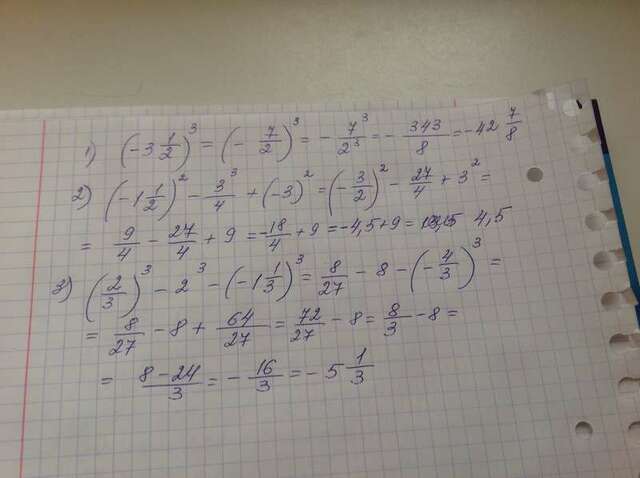 1) (-3 1/2)³ = (- 7/2)³ = - 7³/2³ = - 343/8 = -42 7/8
2) (-1 1/2)² - 3³/4 + (-3)² = (- 3/2)² - 27/4 + 3² =
= 9/4 - 27/4 + 9 = -18/4 + 9 = -4,5 + 9 = 4,5
3) (2/3)³ - 2³ - (-1 1/3)³ = 8/27 - 8 - (- 4/3)³ =
= 8/27 - 8 + 64/27 = 72/27 - 8 = 8/3 - 8 =
= 8-24/3 = - 16/3 = - 5 1/3